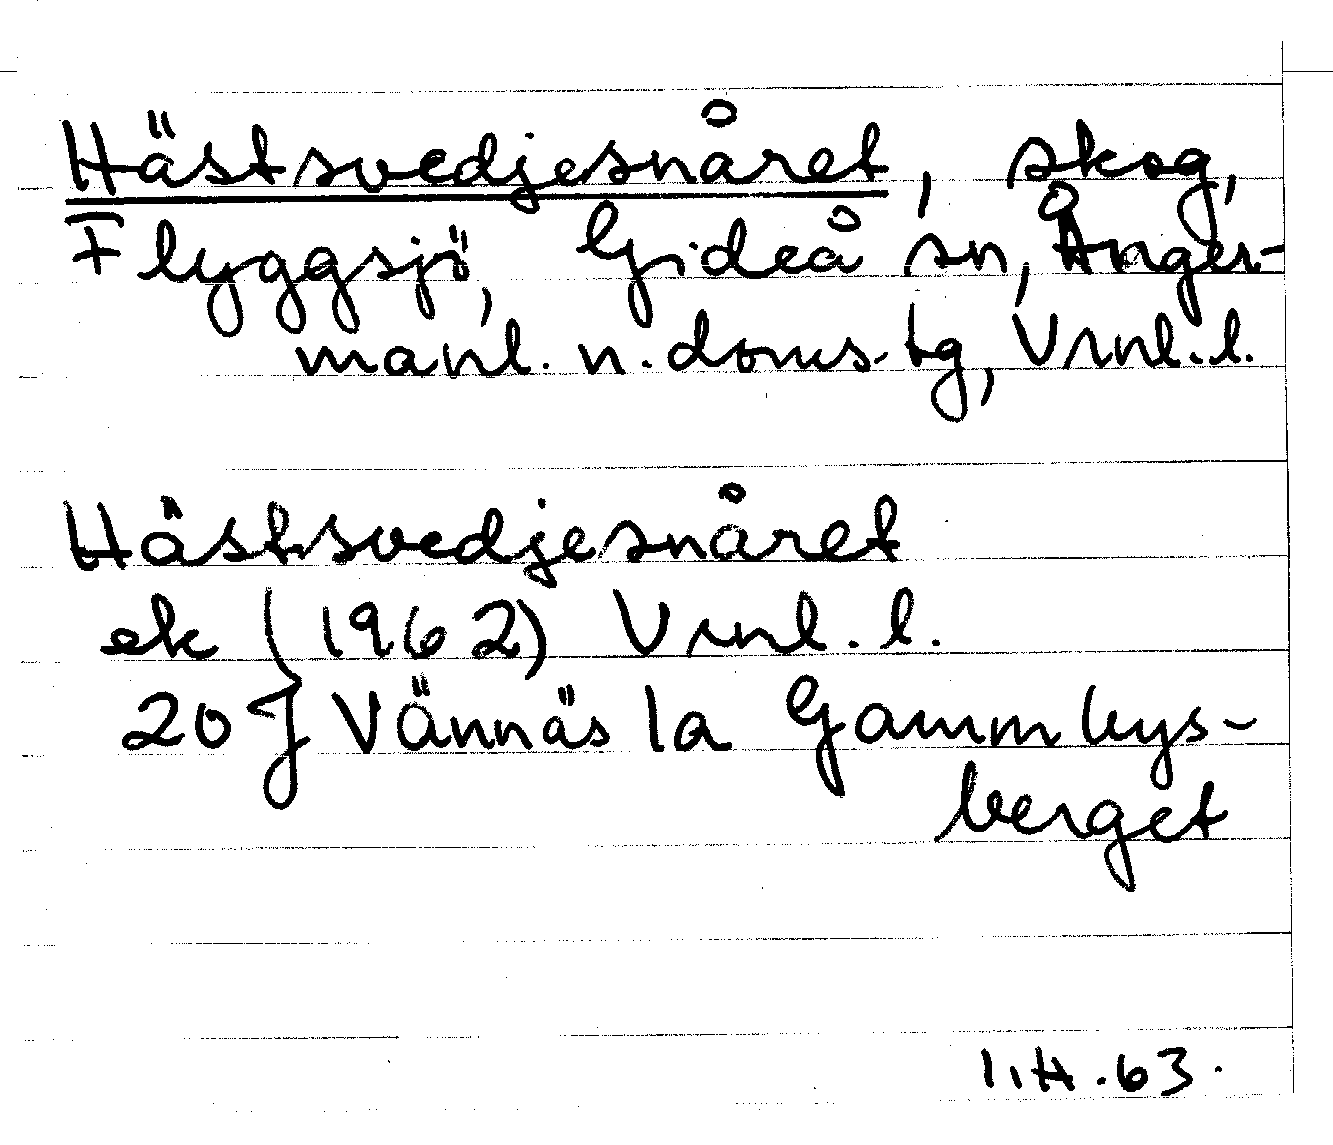 Hästsvedjesnåret, skog,
Flyggsjö, Gideå sn, Ånger-
manl. n. doms. tg, Vrnl. l.
Hästsvedjesnåret
ek (1962) Vrnl. l.
20 J Vännäs 1a Gammbys-
berget
I.H. 63.